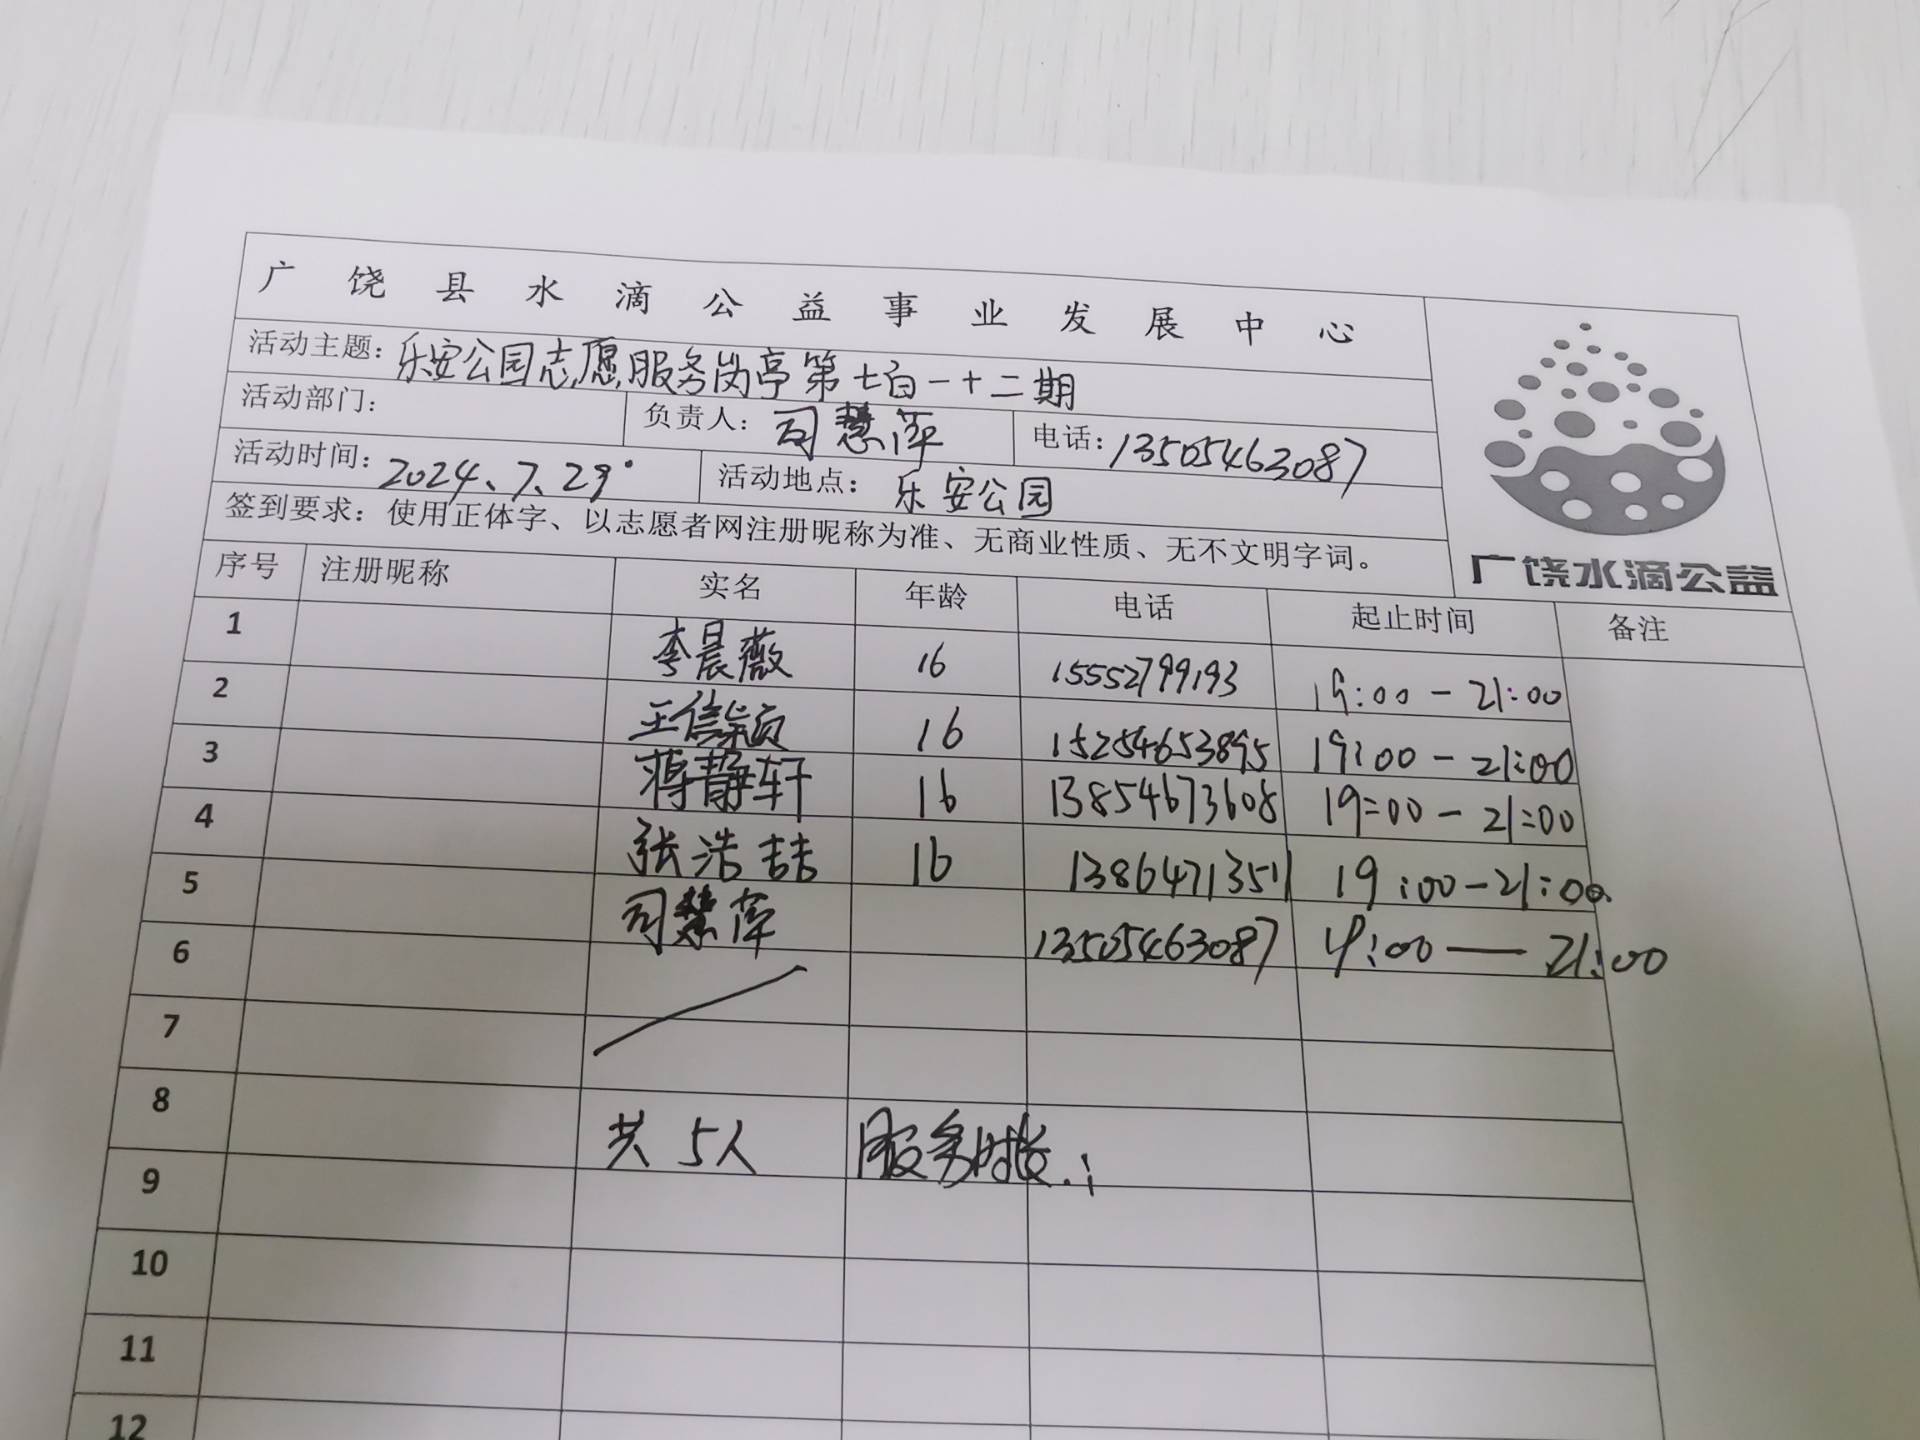 广饶县水滴公益事业发展中心
活动主题：乐安公园志愿服务岗亭第七百一十二期
活动部门：
负责人：司慧萍
电话：13505463087
活动时间：2024、7、29
活动地点：乐安公园
签到要求：使用正体字、以志愿者网注册昵称为准、无商业性质、无不文明字词。
广饶水滴公益
序号 注册昵称 实名 年龄 电话 起止时间 备注
1 李晨薇 16 15552799193 19:00-21:00
2 王信颖 16 15254653895 19:00-21:00
3 蒋静轩 16 13854673608 19:00-21:00
4 张浩喆 16 13864713511 19:00-21:00
5 司慧萍 13505463087 19:00—21:00
6
7
8 共5人 服务时长
9
10
11
12